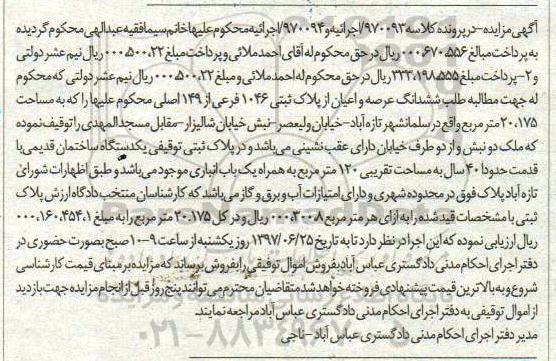 آگهی مزایده-در پرونده کلاسه ۹۷۰۰۹۳/اجرائیه و ۹۷۰۰۹۴/اجرائیه محکوم علیها خانم سیما فقیه عبدالهی محکوم گردیده
به پرداخت مبالغ ۰۰۰,۶۷۰,۵۵۶ ریال در حق محکوم له آقای احمد ملائی و پرداخت مبلغ ۰۰۰,۵۰۰,۲۲ ریال نیم عشر دولتی
و ۲-پرداخت مبلغ ۳۳۳,۱۹۸,۵۵۵ ریال در حق محکوم له احمد ملائی و مبلغ ۰۰۰,۵۰۰,۲۲ ریال نیم عشر دولتی که محکوم
له جهت مطالبه طلب ششدانگ عرصه و اعیان از پلاک ثبتی ۱۰۴۶ فرعی از ۱۴۹ اصلی محکوم علیها را که به مساحت
۲۰,۱۷۵ متر مربع واقع در سلمانشهر تازه آباد-خیابان ولیعصر-نبش خیابان شالیزار-مقابل مسجد المهدی را توقیف نموده
که ملک دو نبش و از دو طرف خیابان دارای عقب نشینی می باشد و در پلاک ثبتی توقیفی یکدستگاه ساختمان قدیمی با
قدمت حدودا ۴۰ سال به مساحت تقریبی ۱۲۰ متر مربع به همراه یک باب انباری موجود می باشد و طبق اظهارات شورای
تازه آباد پلاک فوق در محدوده شهری و دارای امتیازات آب و برق و گاز می باشد که کارشناسان منتخب دادگاه ارزش پلاک
ثبتی با مشخصات قید شده را به ازای هر متر مربع ۰۰۰,۳۰۰,۸ ریال و در کل ۲۰,۱۷۵ متر مربع را به مبلغ ۰۰۰,۱۶۰,۴۵۴,۱
ریال ارزیابی نموده که این اجرا در نظر دارد تا به تاریخ ۱۳۹۷/۰۶/۲۵ روز یکشنبه از ساعت ۹-۱۰ صبح بصورت حضوری در
دفتر اجرای احکام مدنی دادگستری عباس آباد بفروش اموال توقیفی را بفروش برساند که مزایده بر مبنای قیمت کارشناسی
شروع و به بالاترین قیمت پیشنهادی فروخته خواهد شد متقاضیان محترم می توانند پنج روز قبل از انجام مزایده جهت بازدید
از اموال توقیفی به دفتر اجرای احکام مدنی دادگستری عباس آباد مراجعه نمایند.
مدیر دفتر اجرای احکام مدنی دادگستری عباس آباد - ناجی